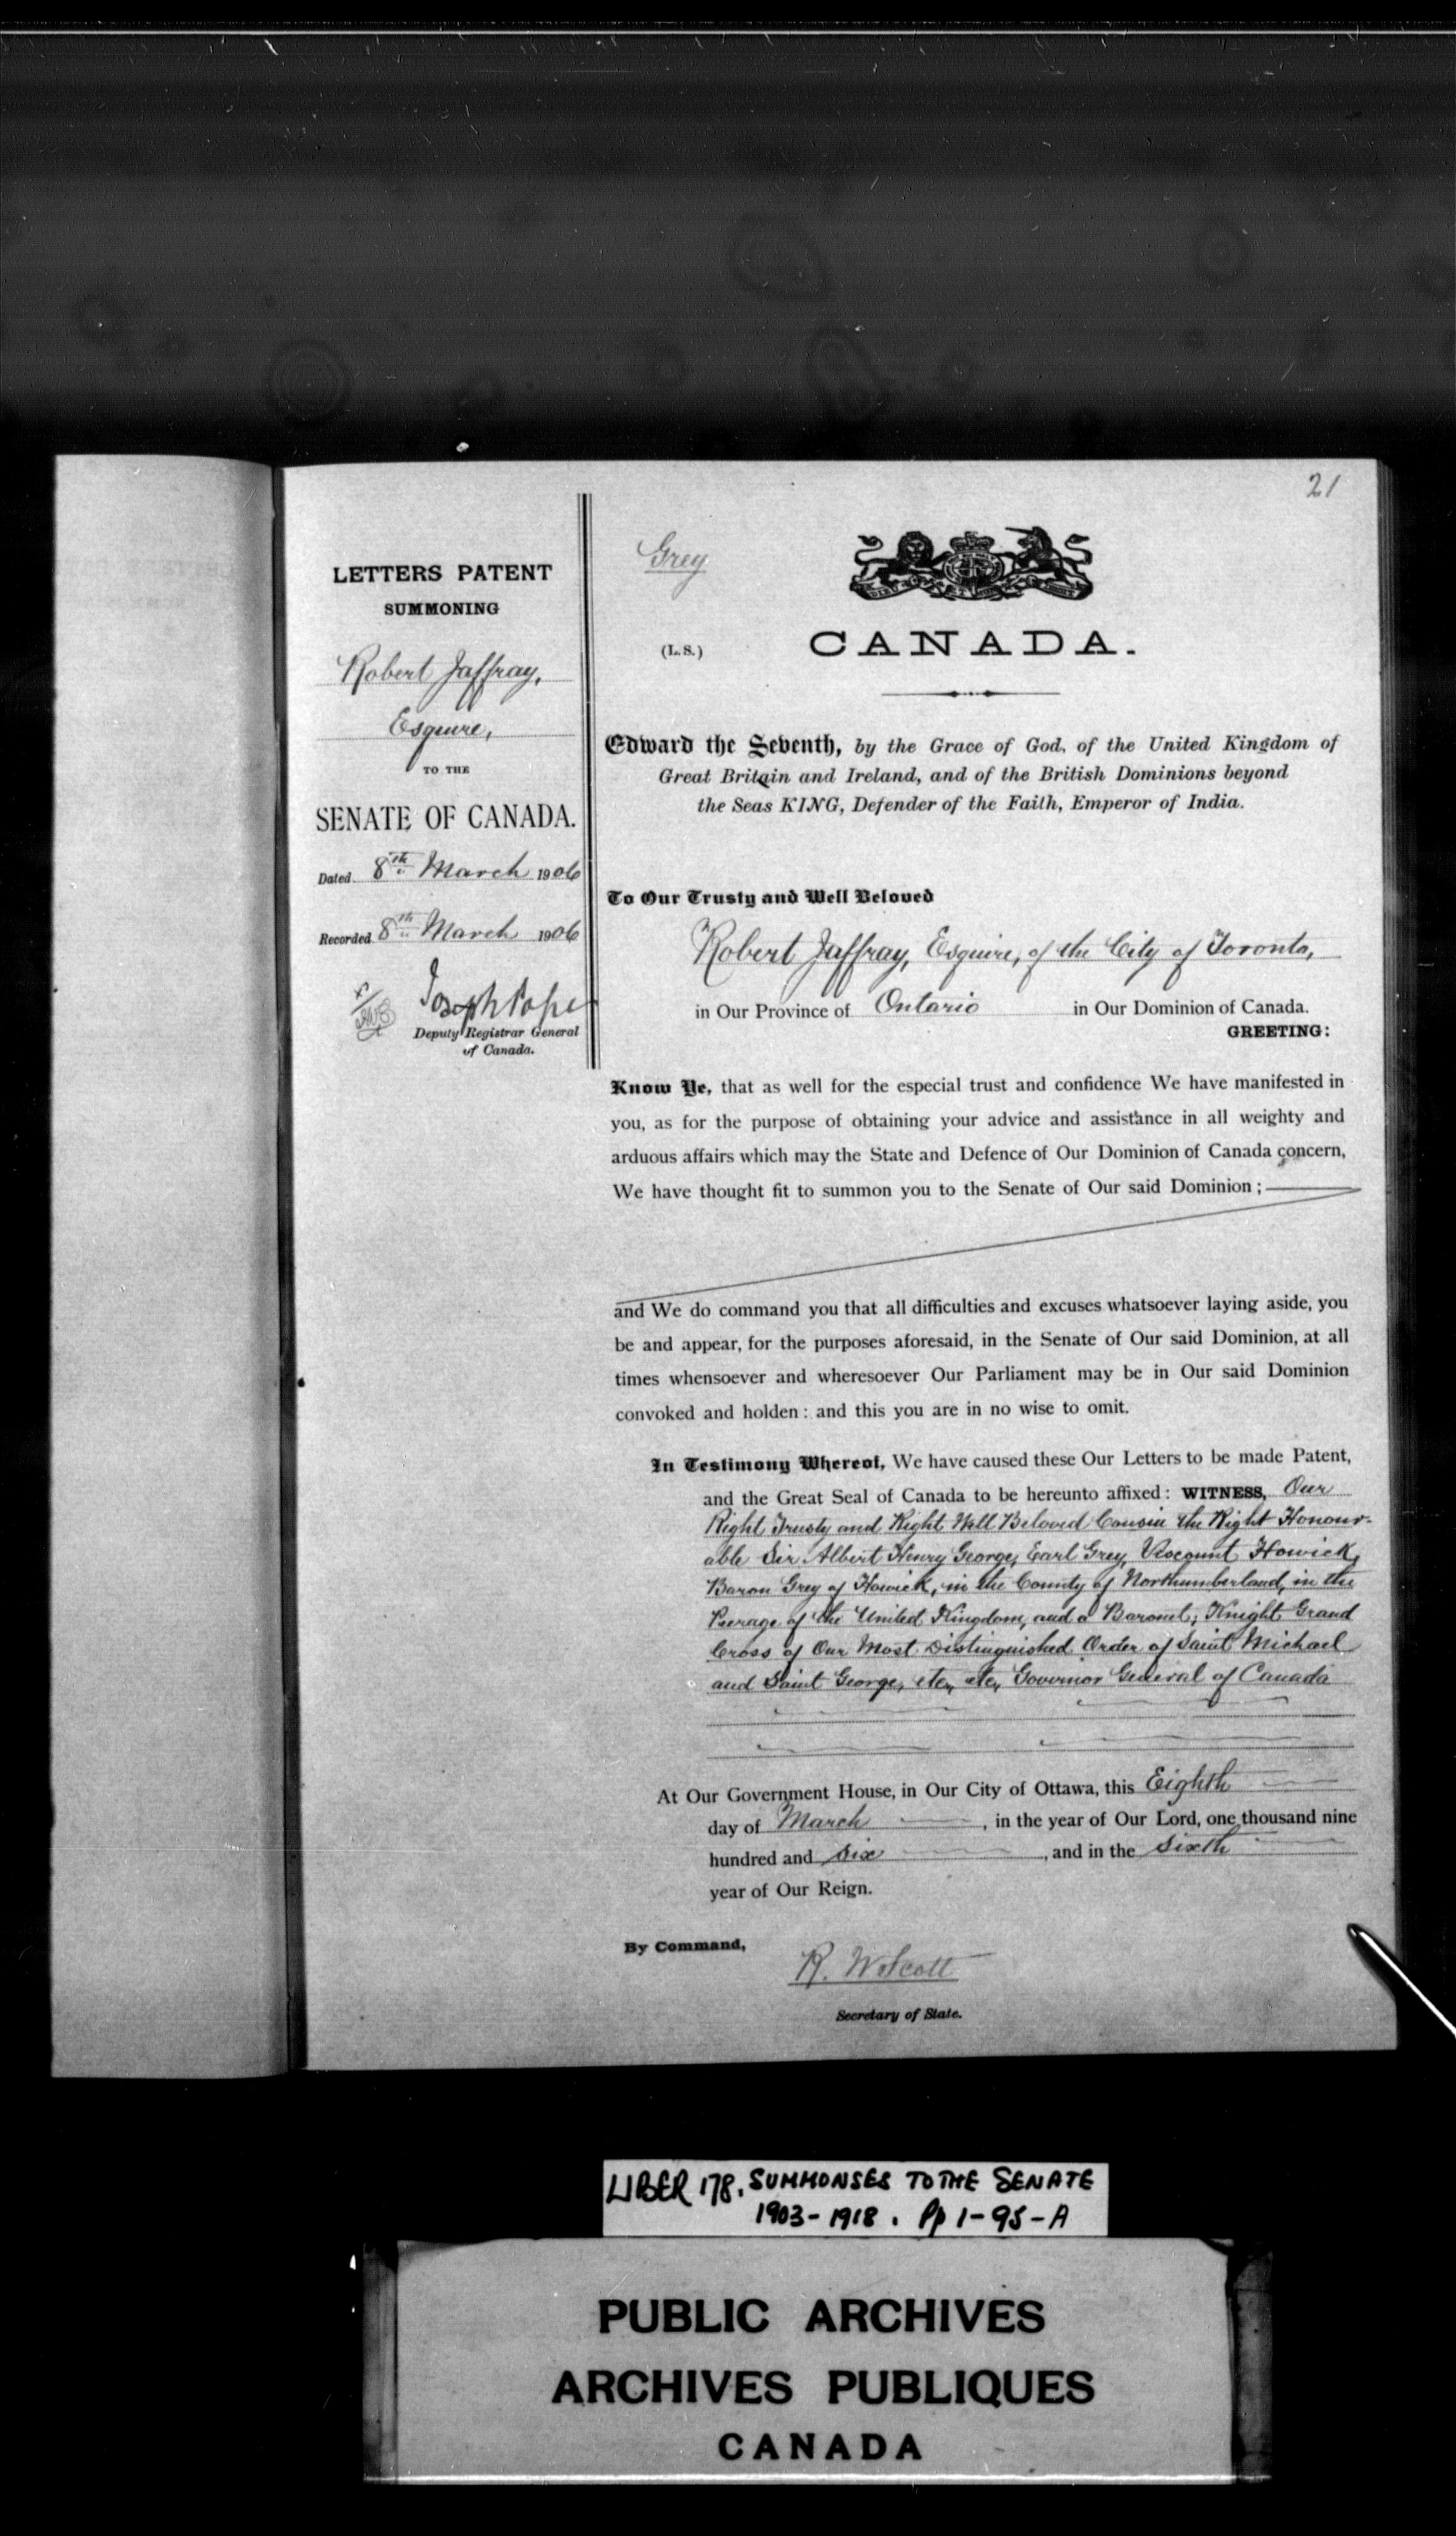 21
LETTERS PATENT
SUMMONING
Robert Jaffray,
Esquire,
TO THE
SENATE OF CANADA.
Dated 8th March 1906
Recorded 8th March 1906
Joseph Pope
Deputy Registrar General
of Canada.
Grey
(L. S.)
CANADA.
Edward the Seventh, by the Grace of God, of the United Kingdom of
Great Britain and Ireland, and of the British Dominions beyond
the Seas KING, Defender of the Faith, Emperor of India.
To Our Trusty and Well Beloved
Robert Jaffray, Esquire, of the City of Toronto,
in Our Province of Ontario in Our Dominion of Canada.
GREETING:
Know Ye, that as well for the especial trust and confidence We have manifested in
you, as for the purpose of obtaining your advice and assistance in all weighty and
arduous affairs which may the State and Defence of Our Dominion of Canada concern,
We have thought fit to summon you to the Senate of Our said Dominion;
and We do command you that all difficulties and excuses whatsoever laying aside, you
be and appear, for the purposes aforesaid, in the Senate of Our said Dominion, at all
times whensoever and wheresoever Our Parliament may be in Our said Dominion
convoked and holden: and this you are in no wise to omit.
In Testimony Whereof, We have caused these Our Letters to be made Patent,
and the Great Seal of Canada to be hereunto affixed: WITNESS, Our
Right Trusty and Right Well Beloved Cousin the Right Honour-
able Sir Albert Henry George, Earl Grey, Viscount Howick,
Baron Grey of Howick, in the County of Northumberland, in the
Peerage of the United Kingdom, and a Baronet; Knight Grand
Cross of Our Most Distinguished Order of Saint Michael
and Saint George, etc., etc., Governor General of Canada
At Our Government House, in Our City of Ottawa, this Eighth
day of March, in the year of Our Lord, one thousand nine
hundred and six, and in the Sixth
year of Our Reign.
By Command,
R. W. Scott
Secretary of State.
LIBER 178. SUMMONSES TO THE SENATE
1903-1918. Pp 1-95-A
PUBLIC ARCHIVES
ARCHIVES PUBLIQUES
CANADA